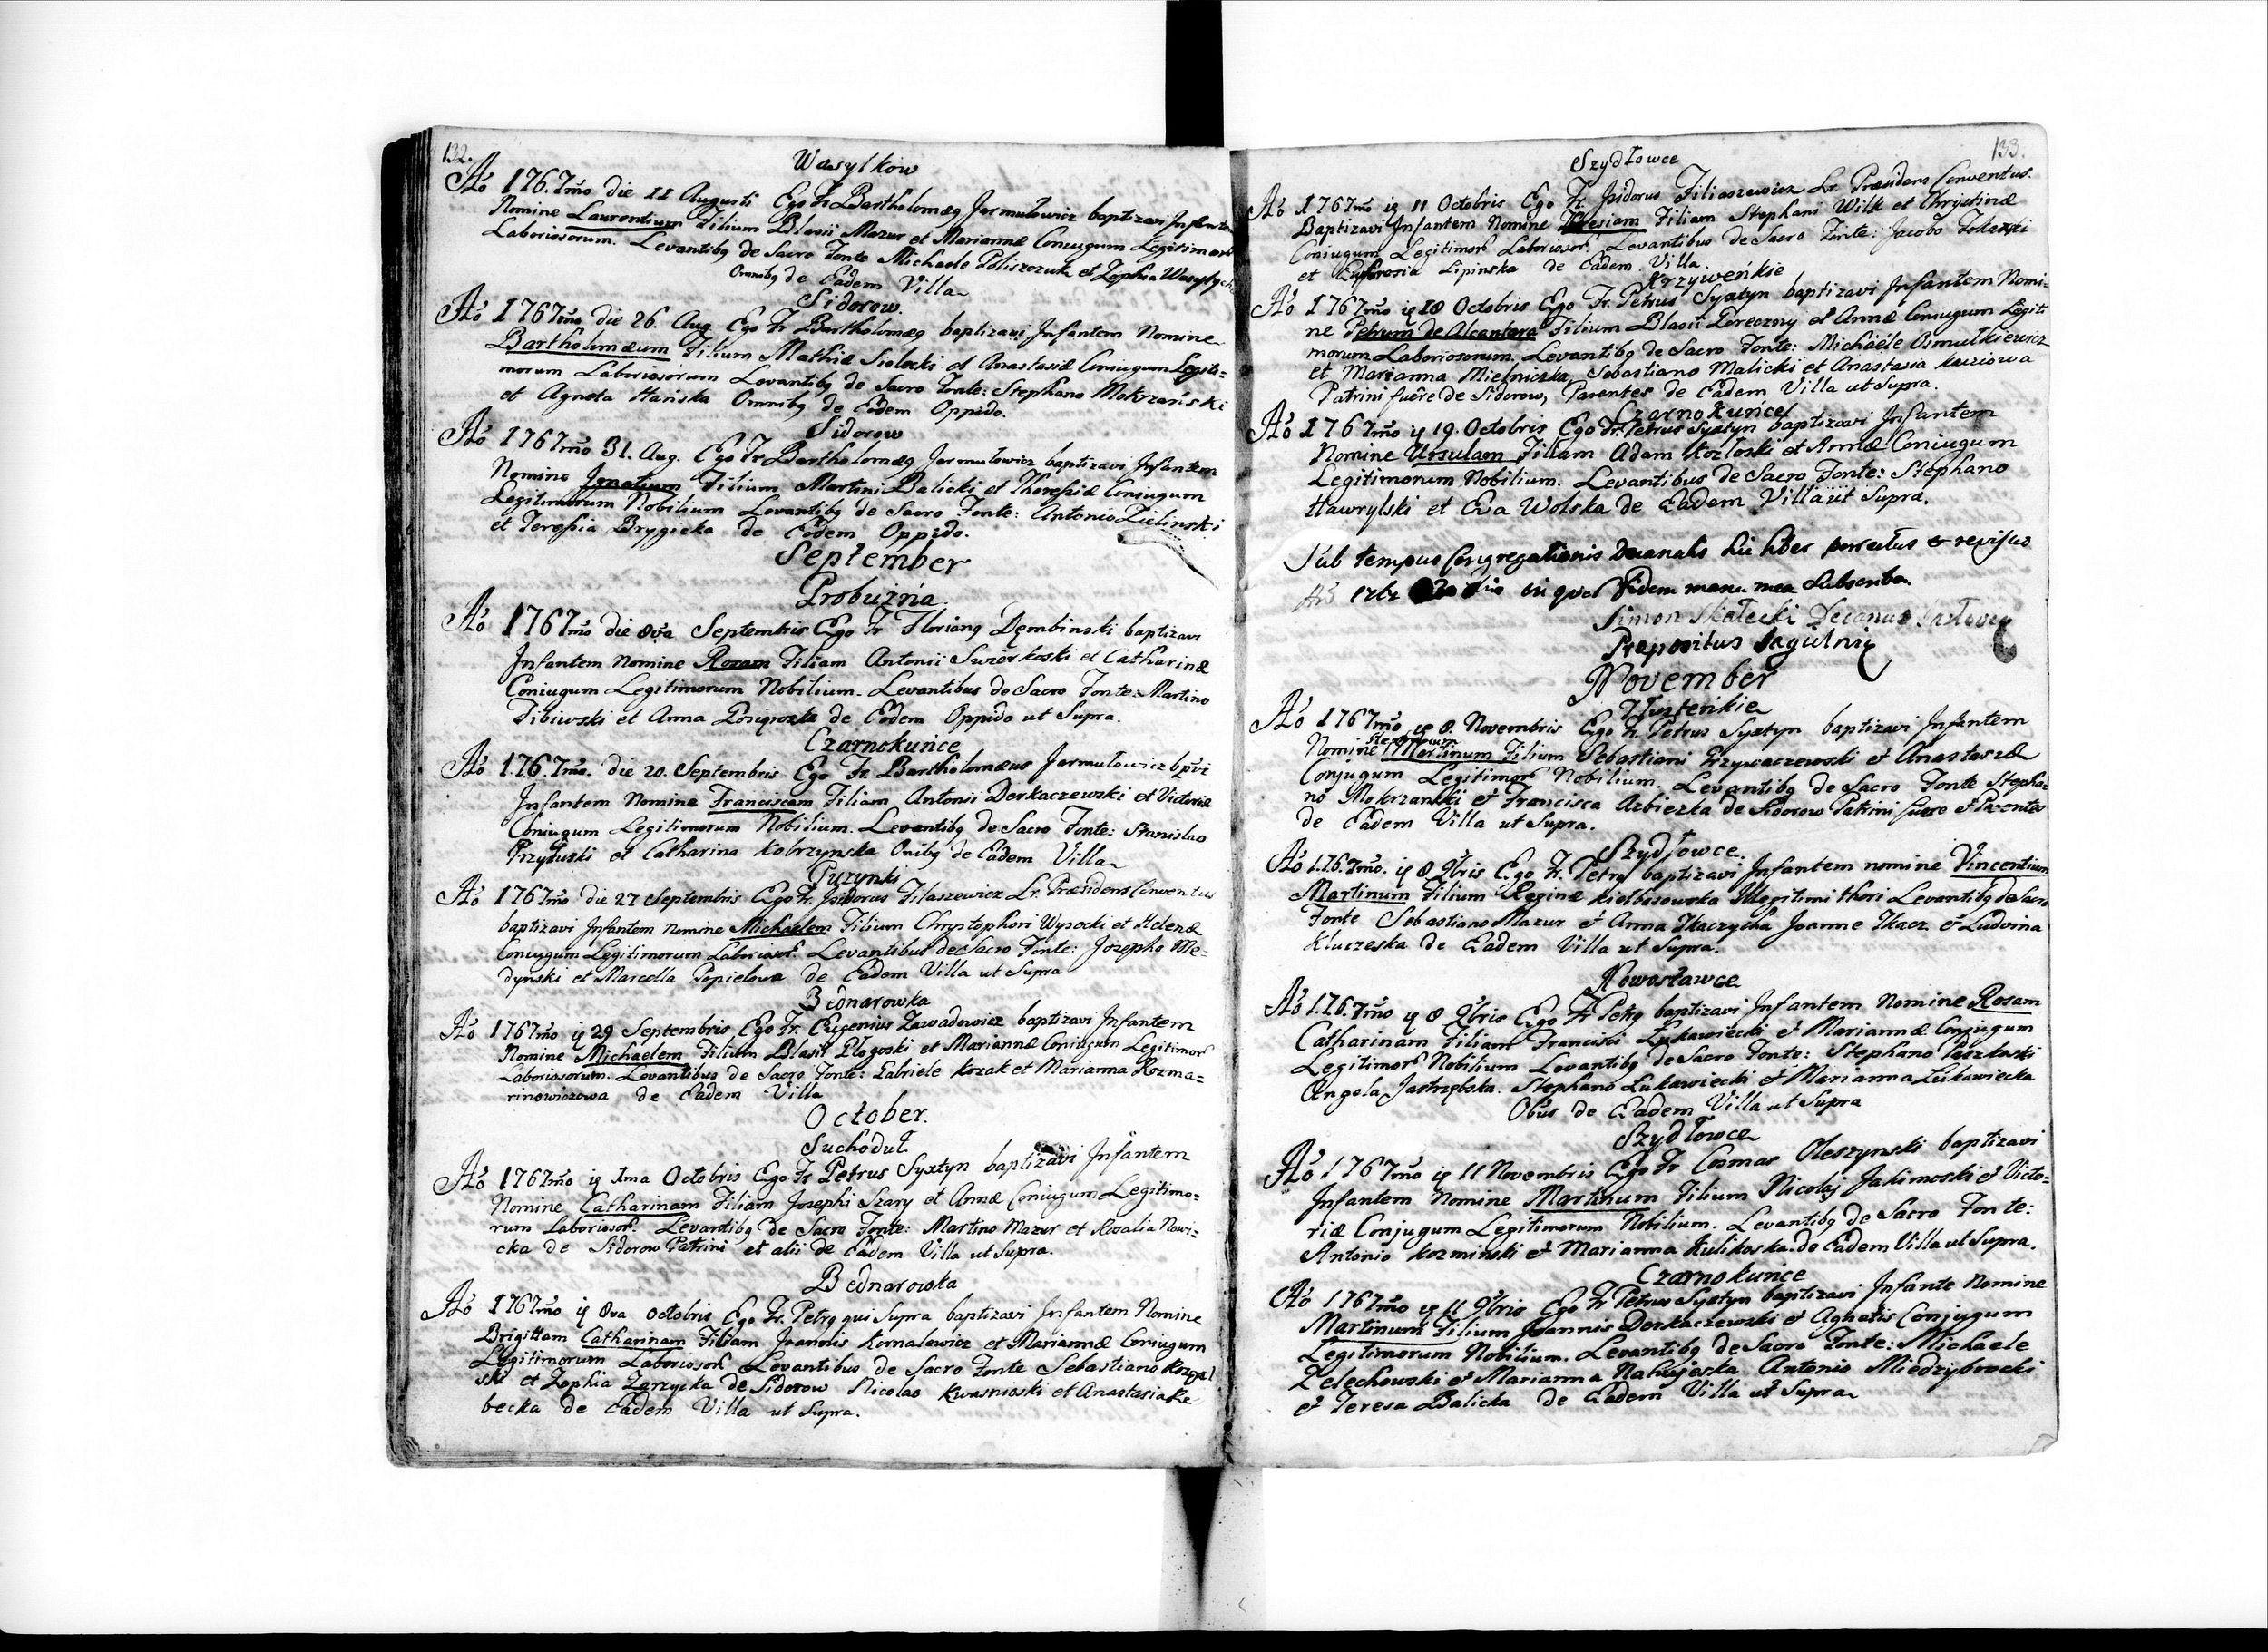 132.
Wasylkow
Aő 1767mő die 11 Augusti Ego Fr Bartholomæg Jarmułowicz baptizavi Infantem
Nomine Laurentium Filium Blasii Mazur et Mariannæ Coniugum Legitimorum
Laboriosorum. Levantibg de Sacro Fonte Michaele Poliszczuk et Zophia
Omnibg de Eadem Villa
Sidorow.
Aő 1767mő die 26. Aug Ego Fr Bartholomæg baptizavi Infantem Nomine
Bartholomæum Filium Mathiæ Siolecki et Anastasiæ Coniugum Legiti=
morum Laboriosorum Levantibg de Sacro Fonte: Stephano Mokrzański
et Agneta Hańska Omnibg de Eodem Oppido.
Sidorow
Aő 1767mő 31. Aug. Ego Fr Bartholomæg Jarmułowicz baptizavi Infantem
Nomine Ignatium Filium Martini Balicki et Theresiæ Coniugum
Legitimorum Nobilium Levantibg de Sacro Fonte: Antonio Zielinski
et Teresia Brygicka de Eodem Oppido.
September
Probużna.
Aő 1767mő die 8va Septembris Ego Fr Floriang Dembinski baptizavi
Infantem Nomine Rosam Filiam Antonii et Catharinæ
Coniugum Legitimorum Nobilium. Levantibus de Sacro Fonte: Martino
Tibiwski et Anna de Eodem Oppido ut Supra.
Czarnokuńce
Aő 1767mő. die 20. Septembris Ego Fr. Bartholomæus Jarmułowicz bpvi
Infantem Nomine Franciscam Filiam Antonii Derkaczewski et Victoriæ
Coniugum Legitimorum Nobilium. Levantibg de Sacro Fonte: Stanislao
Przyłuski et Catharina Kobrzynska Onibg de Eadem Villa
Guzynki
Aő 1767mő die 27 Septembris Ego Fr. Isidorus Filaszewicz Lr. Præsidens Conventus
baptizavi Infantem Nomine Michaelem Filium Chrystophori Wysocki et Helenæ
Coniugum Legitimorum Laborioso. Levantibus de Sacro Fonte: Josepho Me=
dynski et Marcella Popielowa de Eadem Villa ut Supra
Bednarowka
Aő 1767mő ij 29 Septembris Ego Fr. Eugenius Zawadowicz baptizavi Infantem
Nomine Michaelem Filium Blasii Płogoski et Mariannæ Coniugum Legitimor
Laboriosorum. Levantibus de Sacro Fonte: Gabriele Kozak et Marianna Rozma=
rinowiczowa de Eadem Villa
October.
Suchoduł
Aő 1767mő ij 1ma Octobris Ego Fr Petrus Syxtyn baptizavi Infantem
Nomine Catharinam Filiam Josephi Szary et Annæ Coniugum Legitimo=
rum Laborioso. Levantibg de Sacro Fonte: Martino Mazur et Rosalia Nowi=
cka de Sidorow Patrini et alii de Eadem Villa ut Supra.
Bednarowka
Aő 1767mő ij 8va Octobris Ego Fr. Petrg qui Supra baptizavi Infantem Nomine
Brigittam Catharinam Filiam Joannis Kornalewicz et Mariannæ Coniugum
Legitimorum Laborioso Levantibus de Sacro Fonte Sebastiano
ski et Zophia Zarzycka de Sidorow Nicolao Kwasnioski et Anastasia Re=
becka de Eadem Villa ut Supra.
133.
Szydłowce
Aő 1767mő ij 11 Octobris Ego Fr. Isidorus Filiaszewicz Lr. Præsidens Conventus.
Baptizavi Infantem Nomine Teresiam Filiam Stephani Wilk et Chrystinæ
Coniugum Legitimor Laborioso Levantibus de Sacro Fonte: Jacobo Tokarski
et Eufrosia Lipinska de Eadem Villa.
Krzyweńkie
Aő 1767mő ij 18 Octobris Ego Fr. Petrus Syxtyn baptizavi Infantem Nomi=
ne Petrum de Alcantara Filium Blasii Poreczny et Annæ Coniugum Legiti
morum Laboriosorum. Levantibg de Sacro Fonte: Michaele Osmulkiewicz
et Marianna Mielniczka, Sebastiano Malicki et Anastasia
Patrini fuêre de Sidorow, Parentes de Eadem Villa ut Supra.
Czarnokuńce
Aő 1767mő ij 19. Octobris Ego Fr. Petrus Syxtyn baptizavi Infantem
Nomine Ursulam Filiam Adam Kozłoski et Annæ Coniugum
Legitimorum Nobilium. Levantibus de Sacro Fonte: Stephano
Hawrylski et Eva Wolska de Eadem Villa ut Supra.
Sub tempus Congregationis Decanalis hic liber et revisus
in quod fidem manu mea Subscribo.
Simon Skałecki Decanus
Præpositus
November
Aő 1767mő ij 8. Novembris Ego Fr. Petrus Syxtyn baptizavi Infantem
Nomine Martinum Filium Sebastiani Przywaczewski et Anastasiæ
Conjugum Legitimor Nobilium. Levantibg de Sacro Fonte Stepha=
no Mokrzanski et Francisca Azbiezka de Sidorow Patrini fuere et Parentes
de Eadem Villa ut Supra.
Szydłowce.
Aő 1767mő. ij 8 9bris Ego Fr. Petrg baptizavi Infantem nomine Vincentium
Martinum Filium Reginæ Kiełbasowska Illegitimi thori Levantibg de Sacro
Fonte Sebastiano Mazur et Anna Tkaczycha Joanne Tkacz et Ludvina
Kluczeska de Eadem Villa ut Supra.
Nowostawce
Aő 1767mő ij 8 9bris Ego Fr Petrg baptizavi Infantem Nomine Rosam
Catharinam Filiam Francisci Łukawiecki et Mariannæ Conjugum
Legitimor Nobilium Levantibg de Sacro Fonte: Stephano Paszkoski
Angela Jastrzębska. Stephano Łukawiecki et Marianna Łukawiecka
Obus de Eadem Villa ut Supra
Szydłowce
Aő 1767mő ij 11 Novembris Ego Fr Cosmas Oleszynski baptizavi
Infantem Nomine Martinum Filium Nicolaj Jakimoski et Victo=
riæ Conjugum Legitimorum Nobilium. Levantibg de Sacro Fonte:
Antonio Kozminski et Marianna Kulikoska de Eadem Villa ut Supra.
Czarnokuńce
Aő 1767mő ij 11 9bris Ego Fr Petrus Syxtyn baptizavi Infante Nomine
Martinum Filium Joannis Derkaczewski et Agnetis Conjugum
Legitimorum Nobilium. Levantibg de Sacro Fonte: Michaele
Zelechowski et Marianna Antonio Miedzybrocki
et Teresa Balicka de Eadem Villa ut Supra